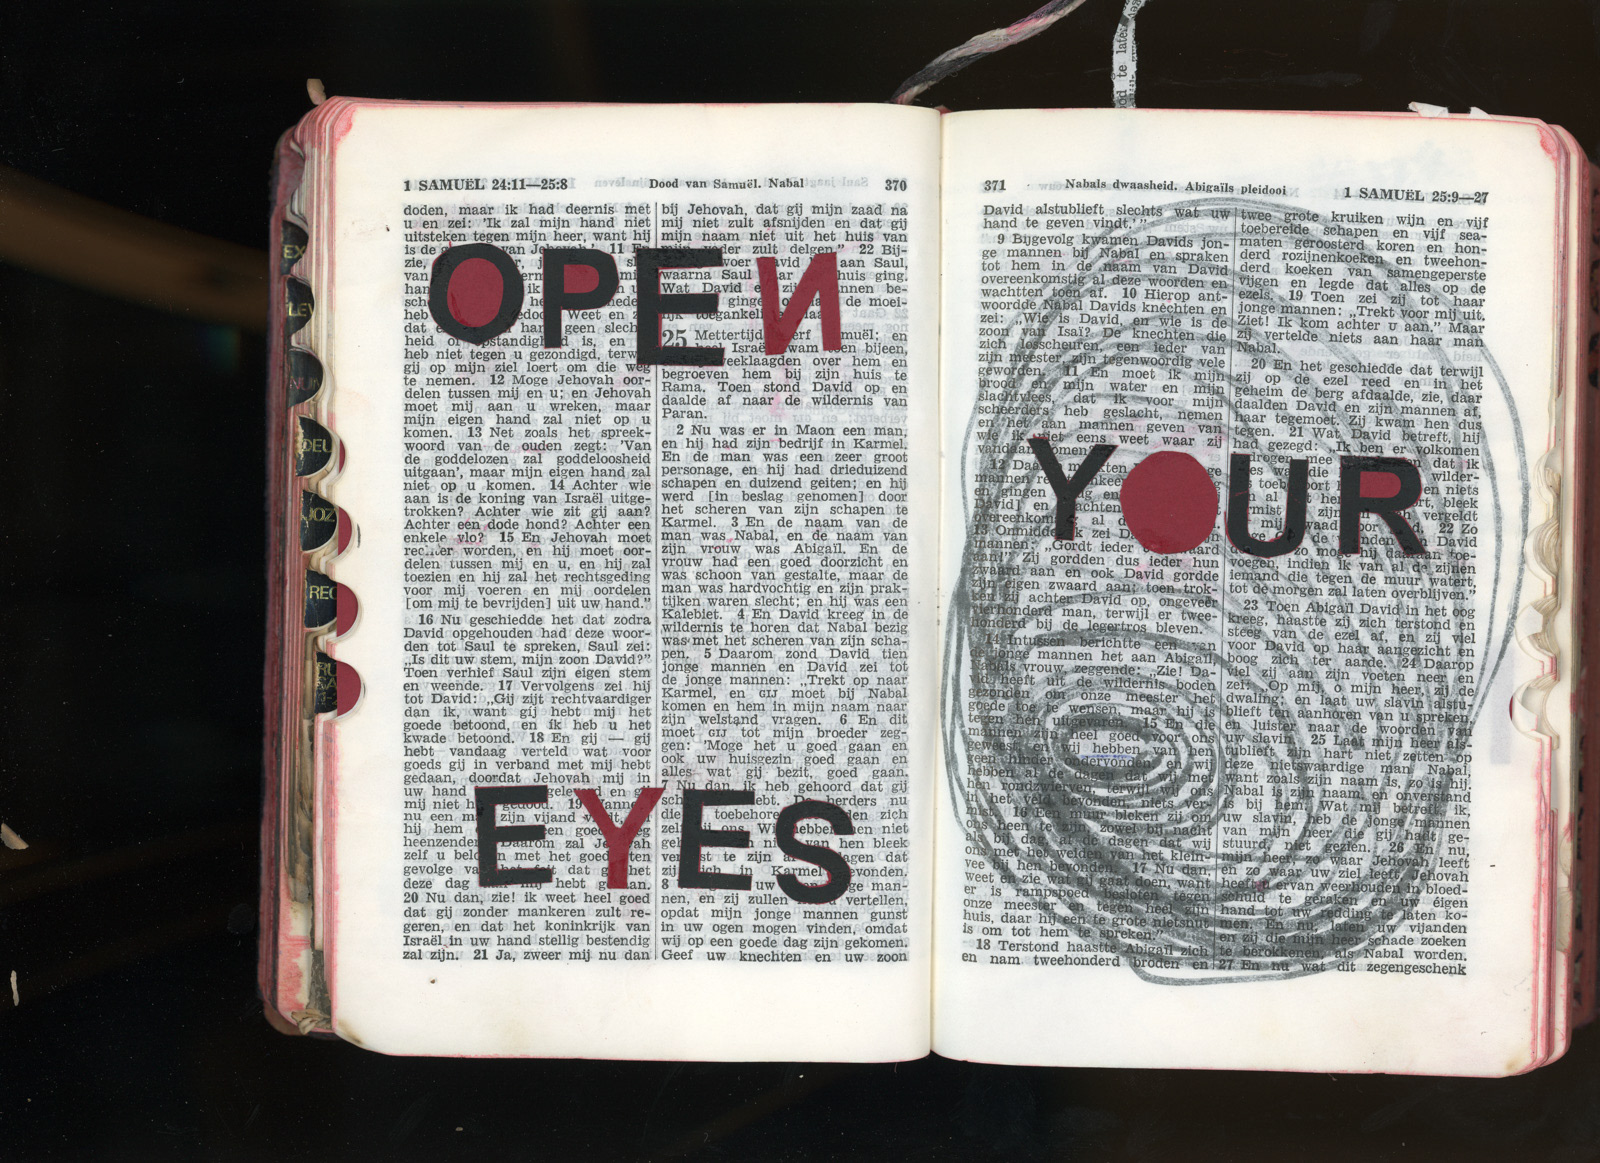 1 SAMUËL 24:11—25:8 Dood van Samuël. Nabal 370
doden, maar ik had deernis met
u en zei: 'Ik zal mijn hand niet
uitsteken tegen mijn heer, want hij
is de van Jehovah.' 11 En
zie,
van
han
sche
heb Weet en
dat er han geen slech
heid of opstandigheid is, en
heb niet tegen u gezondigd, terw
gij op mijn ziel loert om die weg
te nemen. 12 Moge Jehovah oor-
delen tussen mij en u; en Jehovah
moet mij aan u wreken, maar
mijn eigen hand zal niet op u
komen. 13 Net zoals het spreek-
woord van de ouden zegt: 'Van
de goddelozen zal goddeloosheid
uitgaan', maar mijn eigen hand zal
niet op u komen. 14 Achter wie
aan is de koning van Israël uitge-
trokken? Achter wie zit gij aan?
Achter een dode hond? Achter een
enkele vlo? 15 En Jehovah moet
rechter worden, en hij moet oor-
delen tussen mij en u, en hij zal
toezien en hij zal het rechtsgeding
voor mij voeren en mij oordelen
[om mij te bevrijden] uit uw hand."
16 Nu geschiedde het dat zodra
David opgehouden had deze woor-
den tot Saul te spreken, Saul zei:
„Is dit uw stem, mijn zoon David?"
Toen verhief Saul zijn eigen stem
en weende. 17 Vervolgens zei hij
tot David: „Gij zijt rechtvaardiger
dan ik, want gij hebt mij het
goede betoond, en ik heb u het
kwade betoond. 18 En gij — gij
hebt vandaag verteld wat voor
goeds gij in verband met mij hebt
gedaan, doordat Jehovah mij in
uw hand gelev en gij
mij niet h gedood. 19 Wanne
nu een ma zijn vijand
hij hem een goed
heenzenden Daarom zal Je
zelf u belo met het goed
gevolge va dat g het
deze dag mij hebt g an.
20 Nu dan, zie! ik weet heel goed
dat gij zonder mankeren zult re-
geren, en dat het koninkrijk van
Israël in uw hand stellig bestendig
zal zijn. 21 Ja, zweer mij nu dan
bij Jehovah, dat gij mijn zaad na
mij niet zult afsnijden en dat gij
mijn naam niet uit het huis van
mijn vader zult delgen." 22 Bij-
Saul,
waarna Saul huis ging.
Wat David e zij nnen be-
ginge de moei-
toegankelij
25 Mettertijd erf muël; en
Israë kwam en bijeen,
weeklaagden over hem en
begroeven hem bij zijn huis te
Rama. Toen stond David op en
daalde af naar de wildernis van
Paran.
2 Nu was er in Maon een man,
en hij had zijn bedrijf in Karmel.
En de man was een zeer groot
personage, en hij had drieduizend
schapen en duizend geiten; en hij
werd [in beslag genomen] door
het scheren van zijn schapen te
Karmel. 3 En de naam van de
man was Nabal, en de naam van
zijn vrouw was Abigaïl. En de
vrouw had een goed doorzicht en
was schoon van gestalte, maar de
man was hardvochtig en zijn prak-
tijken waren slecht; en hij was een
Kalebiet. 4 En David kreeg in de
wildernis te horen dat Nabal bezig
was met het scheren van zijn scha-
pen. 5 Daarom zond David tien
jonge mannen en David zei tot
de jonge mannen: „Trekt op naar
Karmel, en GIJ moet bij Nabal
komen en hem in mijn naam naar
zijn welstand vragen. 6 En dit
moet GIJ tot mijn broeder zeg-
gen: 'Moge het u goed gaan en
ook uw huisgezin goed gaan en
alles wat gij bezit, goed gaan.
7 Nu dan, ik heb gehoord dat gij
sch ebt. De herders nu
die toebehore den zich
zel bij ons. Wij hebben hen niet
en ni van hen bleek
ve st te zijn al dagen dat
zij ich in Karmel bevonden.
8 uw ge man-
nen, en zij zullen u vertellen,
opdat mijn jonge mannen gunst
in uw ogen mogen vinden, omdat
wij op een goede dag zijn gekomen.
Geef uw knechten en uw zoon
OPEN
EYES
EX
LEV
NUM
DEU
JOZ
REC
RU
SA
371 Nabals dwaasheid. Abigaïls pleidooi 1 SAMUËL 25:9—27
David alstublieft slechts wat uw
hand te geven vindt.' "
9 Bijgevolg kwamen Davids jon-
ge mannen bij Nabal en spraken
tot hem in de naam van David
overeenkomstig al deze woorden en
wachtten toen af. 10 Hierop ant-
woordde Nabal Davids knechten en
zei: „Wie is David, en wie is de
zoon van Isaï? De knechten die
zich losscheuren, een ieder van
zijn meester, zijn tegenwoordig vele
geworden. 11 En moet ik mijn
brood en mijn water en mijn
slachtvlees, dat ik voor mijn
scheerders heb geslacht, nemen
en het aan mannen geven van
wie ik niet eens weet waar zij
vandaan komen
12 Daa kten ge
mannen re keer
en gingen ug en
David] en achten
overeenkoms al de
13 Onmidde k zei D
mannen: „Gordt ieder waard
aan!" Zij gordden dus ieder hun
zwaard aan en ook David gordde
zijn eigen zwaard aan; toen trok-
ken zij achter David op, ongeveer
vierhonderd man, terwijl er twee-
honderd bij de legertros bleven.
14 Intussen berichtte een van
de jonge mannen het aan Abigaïl,
Nabals vrouw, zeggende: „Zie! Da-
vid heeft uit de wildernis boden
gezonden om onze meester het
goede toe te wensen, maar hij is
tegen hen uitgevaren. 15 En die
mannen zijn heel goed voor ons
geweest, en wij hebben van hen
geen hinder ondervonden en wij
hebben al de dagen dat wij met
hen rondzwierven, terwijl wij ons
in het veld bevonden, niets ver-
mist. 16 Een muur bleken zij om
ons heen te zijn, zowel bij nacht
als bij dag, al de dagen dat wij
ons met het weiden van het klein-
vee bij hen bevonden. 17 Nu dan,
weet en zie wat gij gaat doen, want
er is rampspoed besloten tegen
onze meester en tegen heel zijn
huis, daar hij een te grote nietsnut
is om tot hem te spreken."
18 Terstond haastte Abigaïl zich
en nam tweehonderd broden en
twee grote kruiken wijn en vijf
toebereide schapen en vijf sea-
maten geroosterd koren en hon-
derd rozijnenkoeken en tweehon-
derd koeken van samengeperste
vijgen en legde dat alles op de
ezels. 19 Toen zei zij tot haar
jonge mannen: „Trekt voor mij uit.
Ziet! Ik kom achter U aan." Maar
zij vertelde niets aan haar man
Nabal.
20 En het geschiedde dat terwijl
zij op de ezel reed en in het
geheim de berg afdaalde, zie, daar
daalden David en zijn mannen af,
haar tegemoet. Zij kwam hen dus
tegen. 21 Wat David betreft, hij
had gezegd: „Ik ben er volkomen
drogen me om dat ik
es wat die wilder-
toebehoort en niets
n al het hem ort, bleek
mist te zijn, en vergeldt
mij waad voor ed. 22 Zo
e de vijanden David
zo moge hij daaraan toe-
voegen, indien ik van al de zijnen
iemand die tegen de muur watert,
tot de morgen zal laten overblijven."
23 Toen Abigaïl David in het oog
kreeg, haastte zij zich terstond en
steeg van de ezel af, en zij viel
voor David op haar aangezicht en
boog zich ter aarde. 24 Daarop
viel zij aan zijn voeten neer en
zei: „Op mij, o mijn heer, zij de
dwaling; en laat uw slavin alstu-
blieft ten aanhoren van u spreken,
en luister naar de woorden van
uw slavin. 25 Laat mijn heer als-
tublieft zijn hart niet zetten op
deze nietswaardige man Nabal,
want zoals zijn naam is, zo is hij.
Nabal is zijn naam, en onverstand
is bij hem. Wat mij betreft, ik,
uw slavin, heb de jonge mannen
van mijn heer die gij hadt ge-
stuurd, niet gezien. 26 En nu,
mijn heer, zo waar Jehovah leeft
en zo waar uw ziel leeft, Jehovah
heeft u ervan weerhouden in bloed-
schuld te geraken en uw éigen
hand tot uw redding te laten ko-
men. En nu, laten uw vijanden
en zij die mijn heer schade zoeken
te berokkenen, als Nabal worden.
27 En nu wat dit zegengeschenk
YOUR